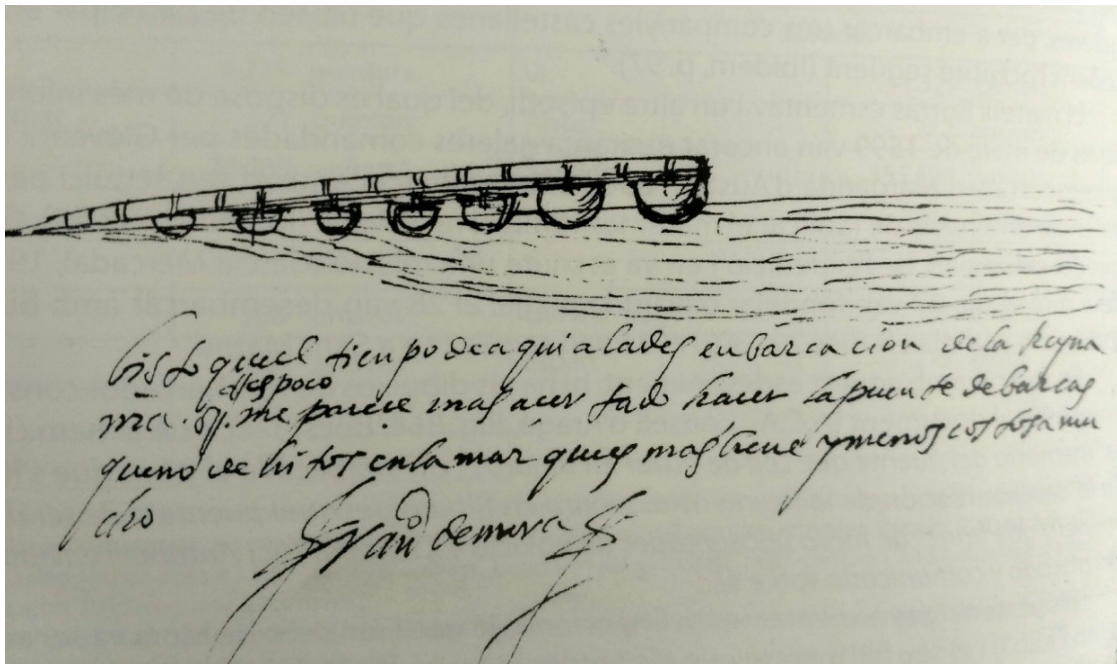 Visto quel tienpo de aqui a la desenbarcacion de la Reyna
es poco
nra. sr. me parece mas acertado hacer la puente de barcas
que no de histos en la mar ques mas breve y menos costosa mu
cho
Franco de mora